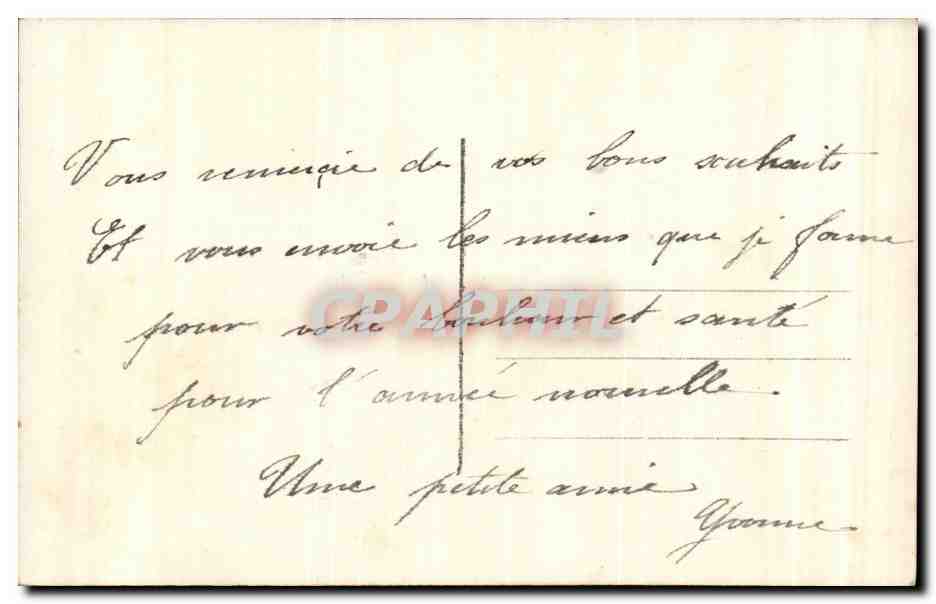 Vous remerçie de vos bons souhaits
Et vous envoie les miens que je forme
pour votre bonheur et santé
CPAPHIL
pour l'année nouvelle.
Une petite amie
Yvonne.